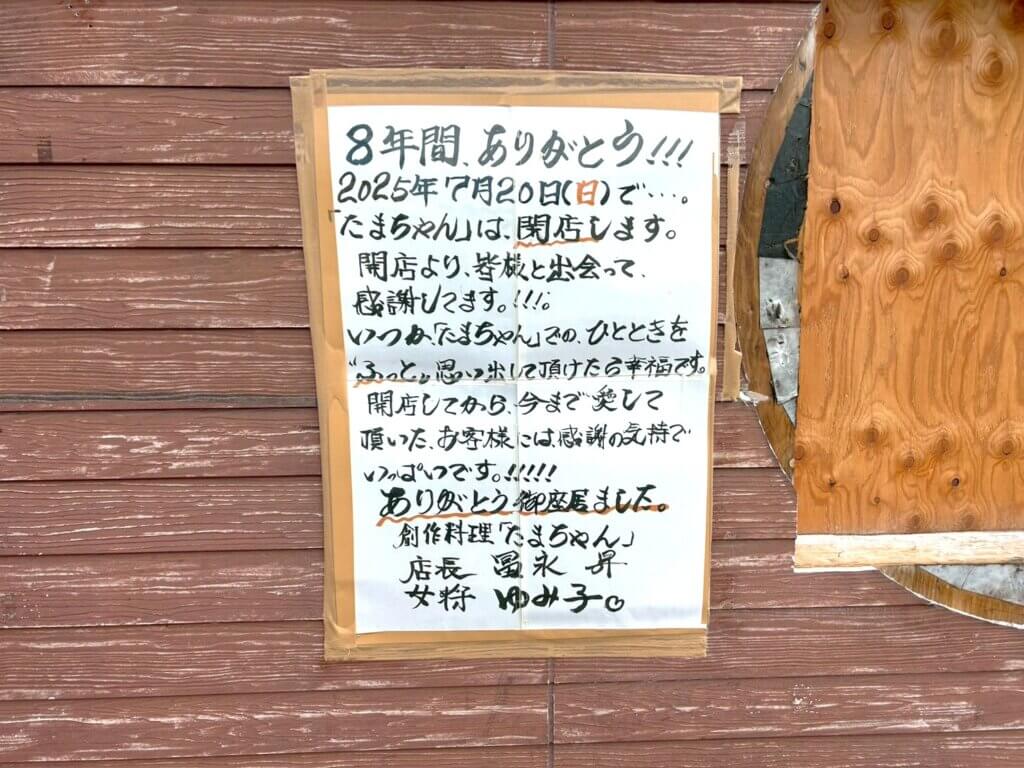 8年間、ありがとう!!!
2025年7月20日(日)で…。
「たまちゃん」は、閉店します。
開店より、皆様と出会って、
感謝してます。!!!。
いつか、「たまちゃん」での、ひとときを
“ふっと〟思い出して頂けたら幸福です。
開店してから、今まで愛して
頂いた、お客様には、感謝の気持で
いっぱいです。!!!!!
ありがとう御座居ました。
創作料理「たまちゃん」
店長 冨永 昇
女将 ゆみ子